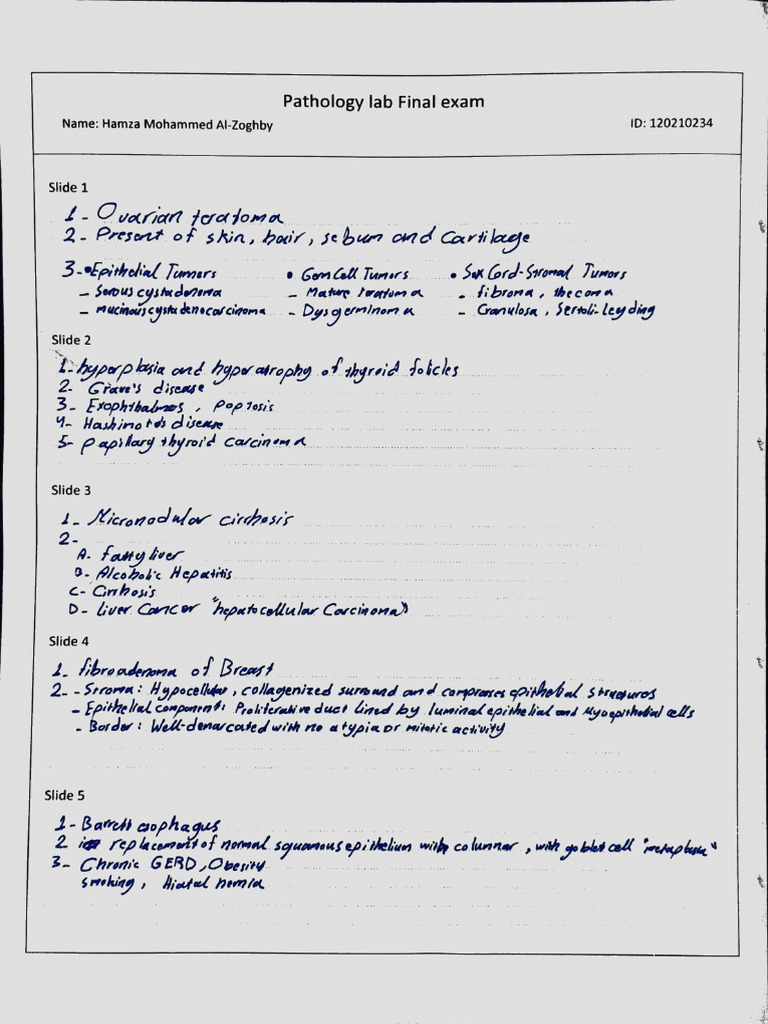 Pathology lab Final exam
Name: Hamza Mohammed Al-Zoghby ID: 120210234
Slide 1
1- Ovarian teratoma
2- Present of skin, hair, sebum and Cartilage
3- • Epithelial Tumors • Gem Cell Tumors • Sex Cord-Stromal Tumors
- Serous cystadenoma - Mature teratoma - fibroma, thecoma
- mucinous cystadenocarcinoma - Dysgerminoma - Granulosa, Sertoli-Leyding
Slide 2
1- hyperplasia and hyperatrophy of thyroid folicles
2- Grave's disease
3- Exophthalmos, poptosis
4- Hashimoto's disease
5- papillary thyroid carcinoma
Slide 3
1- Micronodular cirrhosis
2-
A- fatty liver
B- Alcoholic Hepatitis
C- Cirrhosis
D- Liver Cancer "hepatocellular Carcinoma"
Slide 4
1- fibroadenoma of Breast
2- - Stroma: Hypocellular, collagenized surround and compresses epithelial structures
- Epithelial component: Proliferative duct lined by luminal epithelial and Myoepithelial cells
- Border: Well-demarcated with no atypia or mitotic activity
Slide 5
1- Barrett esophagus
2 replacement of normal squamous epithelium with columnar, with goblet cell "metaplasia"
3- Chronic GERD, Obesity
smoking, Hiatal hernia